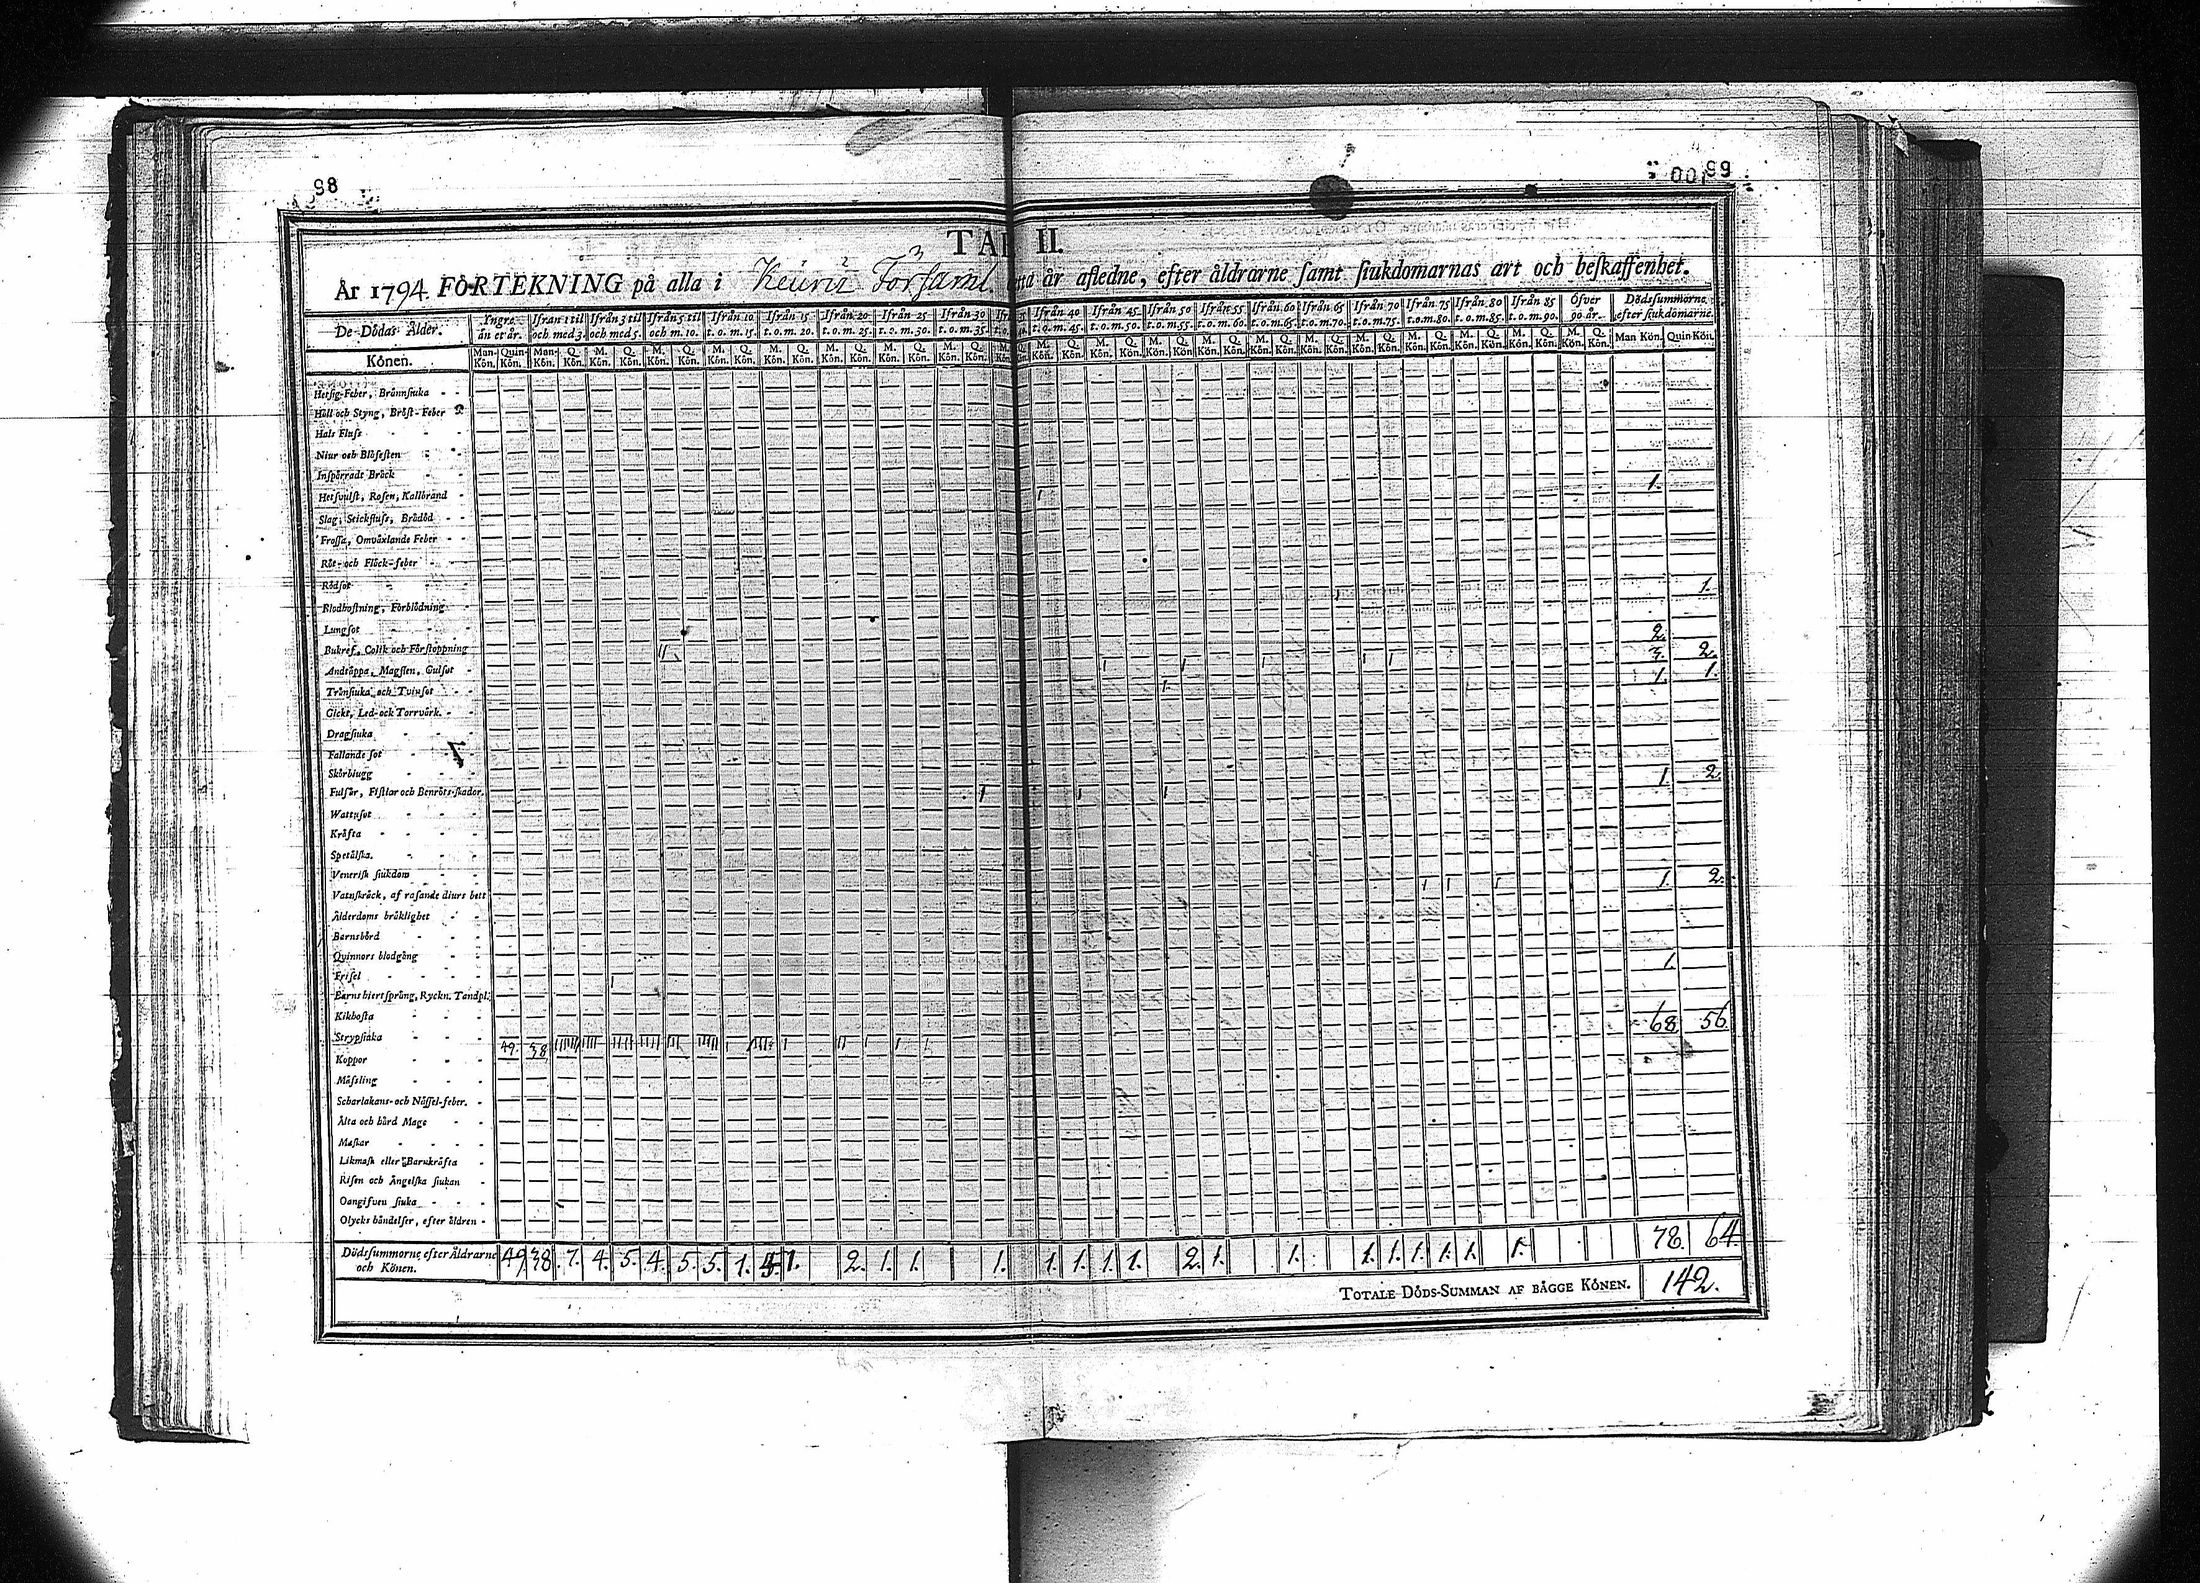 98
99
TAB II.
År 1794. FÖRTEKNING på alla i Keuru Församl detta år afledne, efter åldrarne samt siukdomarnas art och beskaffenhet.
De Dödas Ålder. Ingre än et år. Ifrån 1 til och med 3. Ifrån 3 til och med 5. Ifrån 5 til och m. 10. Ifrån 10 t.o.m. 15. Ifrån 15 t.o.m. 20. Ifrån 20 t.o.m. 25. Ifrån 25 t.o.m. 30. Ifrån 30 t.o.m. 35. Ifrån 40 t.o.m. 45. Ifrån 45 t.o.m. 50. Ifrån 50 t.o.m. 55. Ifrån 55 t.o.m. 60. Ifrån 60 t.o.m. 65. Ifrån 65 t.o.m. 70. Ifrån 70 t.o.m. 75. Ifrån 75 t.o.m. 80. Ifrån 80 t.o.m. 85. Ifrån 85 t.o.m. 90. Öfver 90 år. Dödssummorne efter siukdomarne.
Könen. Man-Kön. Quin-Kön. Man-Kön. Q. Kön. M. Kön. Q. Kön. M. Kön. Q. Kön. M. Kön. Q. Kön. M. Kön. Q. Kön. M. Kön. Q. Kön. M. Kön. Q. Kön. M. Kön. Q. Kön. M. Kön. Q. Kön. M. Kön. Q. Kön. M. Kön. Q. Kön. M. Kön. Q. Kön. M. Kön. Q. Kön. M. Kön. Q. Kön. M. Kön. Q. Kön. M. Kön. Q. Kön. M. Kön. Q. Kön. M. Kön. Q. Kön. M. Kön. Q. Kön. Man Kön. Quin-Kön.
Hetsig-Feber, Brännsiuka
Håll och Styng, Bröst-Feber
Hals Fluss
Niur och Blåsesten
Inspärrade Bråck
Hetsvulst, Rosen, Kallbrand 1 1.
Slag, Stickfluss, Brådöd
Frossa, Omväxlande Feber
Röt- och Fläck-feber
Rödsot 1.
Blodhostning, Förblödning
Lungsot 2.
Bukref, Colik och Förstoppning 11 3. 2.
Andtäppa, Magsten, Gulsot 1 1 1 1 1 1. 1.
Trånsiuka och Tvinsot 1.
Gickt, Led- ock Torrvärk.
Dragsiuka
Fallande sot
Skörbiugg 1. 2.
Fulsår, Fistlar och Benröts-skador. 1 1 1
Wattusot
Kräfta
Spetälska.
Venerisk siukdom
Vattuskräck, af rasande diurs bett 1 1 1 1. 2.
Ålderdoms bräklighet
Barnsbörd
Quinnors blodgång
Frisel 1.
Barns hiertsprång, Ryckn. Tandpl. 1
Kikhosta
Strypsiuka 68 56.
Koppor 49. 38
Mässling
Scharlakans- och Nässel-feber.
Älta och hård Mage
Maskar
Likmask eller Barnkräfta
Risen och Ängelska siukan
Oangifven siuka
Olycks händelser, efter åldren
Dödssummorne efter Åldrarne och Könen. 49 38. 7. 4. 5. 4. 5. 5. 1. 5 1. 2. 1. 1. 1. 1. 1. 1. 1. 2. 1. 1. 1. 1. 1. 1. 1. 1. 78. 64.
TOTALE DÖDS-SUMMAN AF BÄGGE KÖNEN. 142.